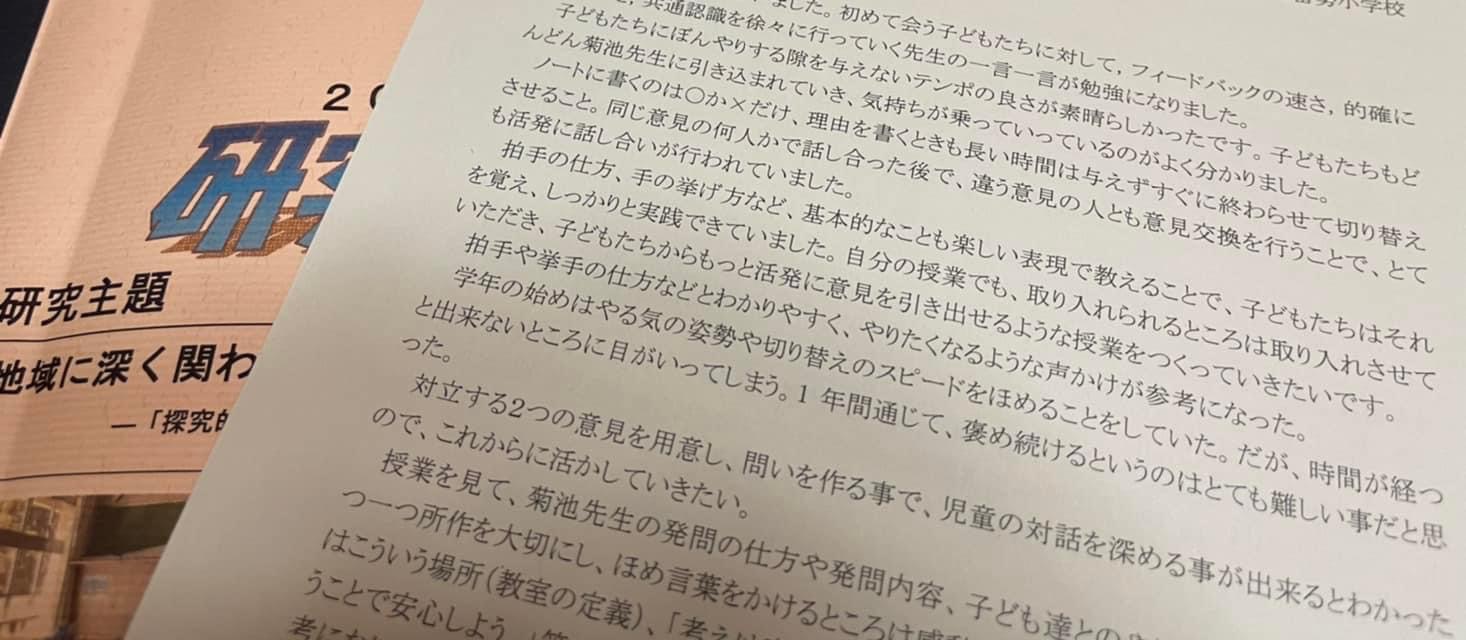 小学校
ました。初めて会う子どもたちに対して，フィードバックの速さ，的確に
共通認識を徐々に行っていく先生の一言一言が勉強になりました。
子どもたちにぼんやりする隙を与えないテンポの良さが素晴らしかったです。子どもたちもど
んどん菊池先生に引き込まれていき、気持ちが乗っていっているのがよく分かりました。
ノートに書くのは〇か×だけ、理由を書くときも長い時間は与えずすぐに終わらせて切り替え
させること。同じ意見の何人かで話し合った後で、違う意見の人とも意見交換を行うことで、とて
も活発に話し合いが行われていました。
拍手の仕方、手の挙げ方など、基本的なことも楽しい表現で教えることで、子どもたちはそれ
を覚え、しっかりと実践できていました。自分の授業でも、取り入れられるところは取り入れさせて
いただき、子どもたちからもっと活発に意見を引き出せるような授業をつくっていきたいです。
拍手や挙手の仕方などとわかりやすく、やりたくなるような声かけが参考になった。
学年の始めはやる気の姿勢や切り替えのスピードをほめることをしていた。だが、時間が経つ
と出来ないところに目がいってしまう。1 年間通じて、褒め続けるというのはとても難しい事だと思
った。
対立する2つの意見を用意し、問いを作る事で、児童の対話を深める事が出来るとわかった
ので、これからに活かしていきたい。
授業を見て、菊池先生の発問の仕方や発問内容、子ども達との
つ一つ所作を大切にし、ほめ言葉をかけるところは感
はこういう場所（教室の定義）、「考え
うことで安心しよう
考にな
20
研究
研究主題
地域に深く関わ
―「探究的